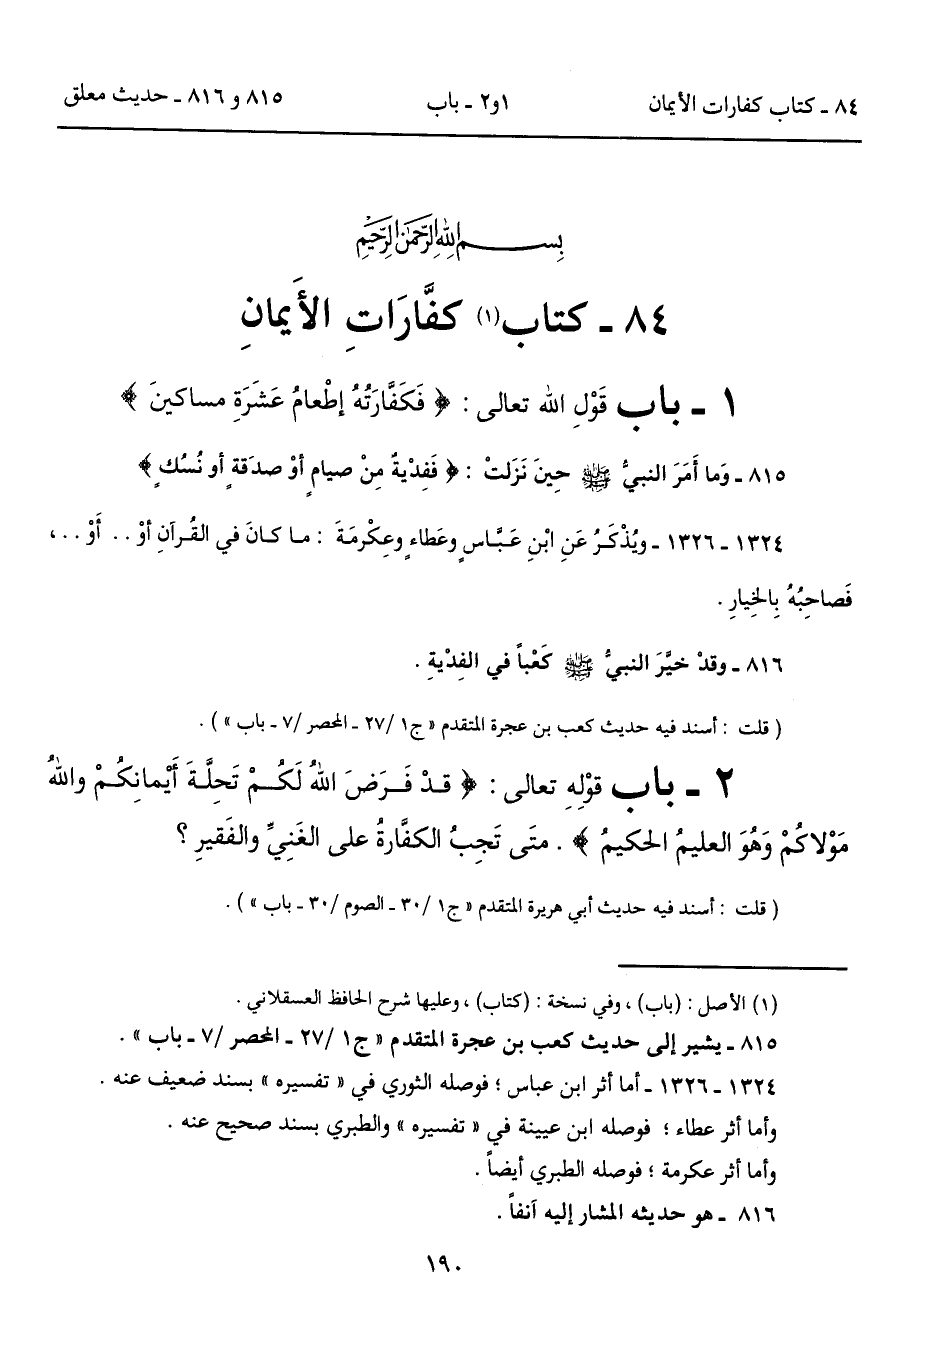 ٨٤ ـ كتاب كفارات الأيمان ١و٢ ـ باب ٨١٥ و ٨١٦ ـ حديث معلق
بِسْمِ اللهِ الرَّحْمَنِ الرَّحِيمِ
٨٤ ـ كتاب(١) كفَّارَاتِ الأَيمانِ
١ ـ باب قَوْلِ الله تعالى : ﴿ فَكَفَّارَتُهُ إطْعامُ عَشَرَةِ مساكينَ ﴾
٨١٥ ـ وَما أَمَرَ النبيُّ ﷺ حِينَ نَزَلتْ : ﴿ فَفِدْيةٌ مِنْ صيامٍ أوْ صدَقةٍ أو نُسُكٍ ﴾
١٣٢٤ ـ ١٣٢٦ ـ ويُذْكَرُ عَنِ ابْنِ عَبَّاسٍ وعَطاءٍ وعِكْرمَةَ : ما كانَ في القُرآنِ أوْ . . أَوْ . . ،
فَصاحِبُهُ بِالخِيارِ .
٨١٦ ـ وقدْ خيَّرَ النبيُّ ﷺ كَعْباً في الفِدْيةِ .
( قلت : أسند فيه حديث كعب بن عجرة المتقدم « ج١ /٢٧ ـ المحصر /٧ ـ باب » ) .
٢ ـ باب قوْلِهِ تعالى : ﴿ قدْ فَرَضَ اللهُ لَكُمْ تَحِلَّةَ أَيْمانِكُمْ واللهُ
مَوْلاكُمْ وَهُوَ العليمُ الحكيمُ ﴾ . متَى تَجِبُ الكفَّارةُ على الغَنِيِّ والفَقيرِ ؟
( قلت : أسند فيه حديث أبي هريرة المتقدم « ج١ /٣٠ ـ الصوم /٣٠ ـ باب » ) .
(١) الأصل : (باب) ، وفي نسخة : (كتاب) ، وعليها شرح الحافظ العسقلاني .
٨١٥ ـ يشير إلى حديث كعب بن عجرة المتقدم « ج١ /٢٧ ـ المحصر /٧ ـ باب » .
١٣٢٤ ـ ١٣٢٦ ـ أما أثر ابن عباس ؛ فوصله الثوري في « تفسيره » بسند ضعيف عنه .
وأما أثر عطاء ؛ فوصله ابن عيينة في « تفسيره » والطبري بسند صحيح عنه .
وأما أثر عكرمة ؛ فوصله الطبري أيضاً .
٨١٦ ـ هو حديثه المشار إليه آنفاً .
١٩٠